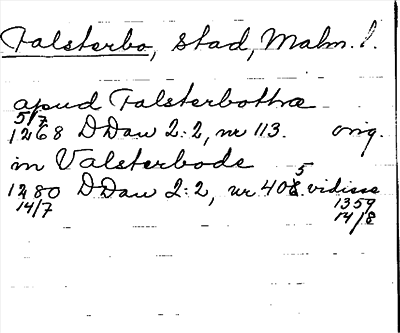 Falsterbo, stad, Malm. l.
apud Falsterbothæ
5/7
1268 DDan 2:2, nr 113. orig.
in Valsterbode
1280 DDan 2:2, nr 405. vidisse
14/7 1359
14/8